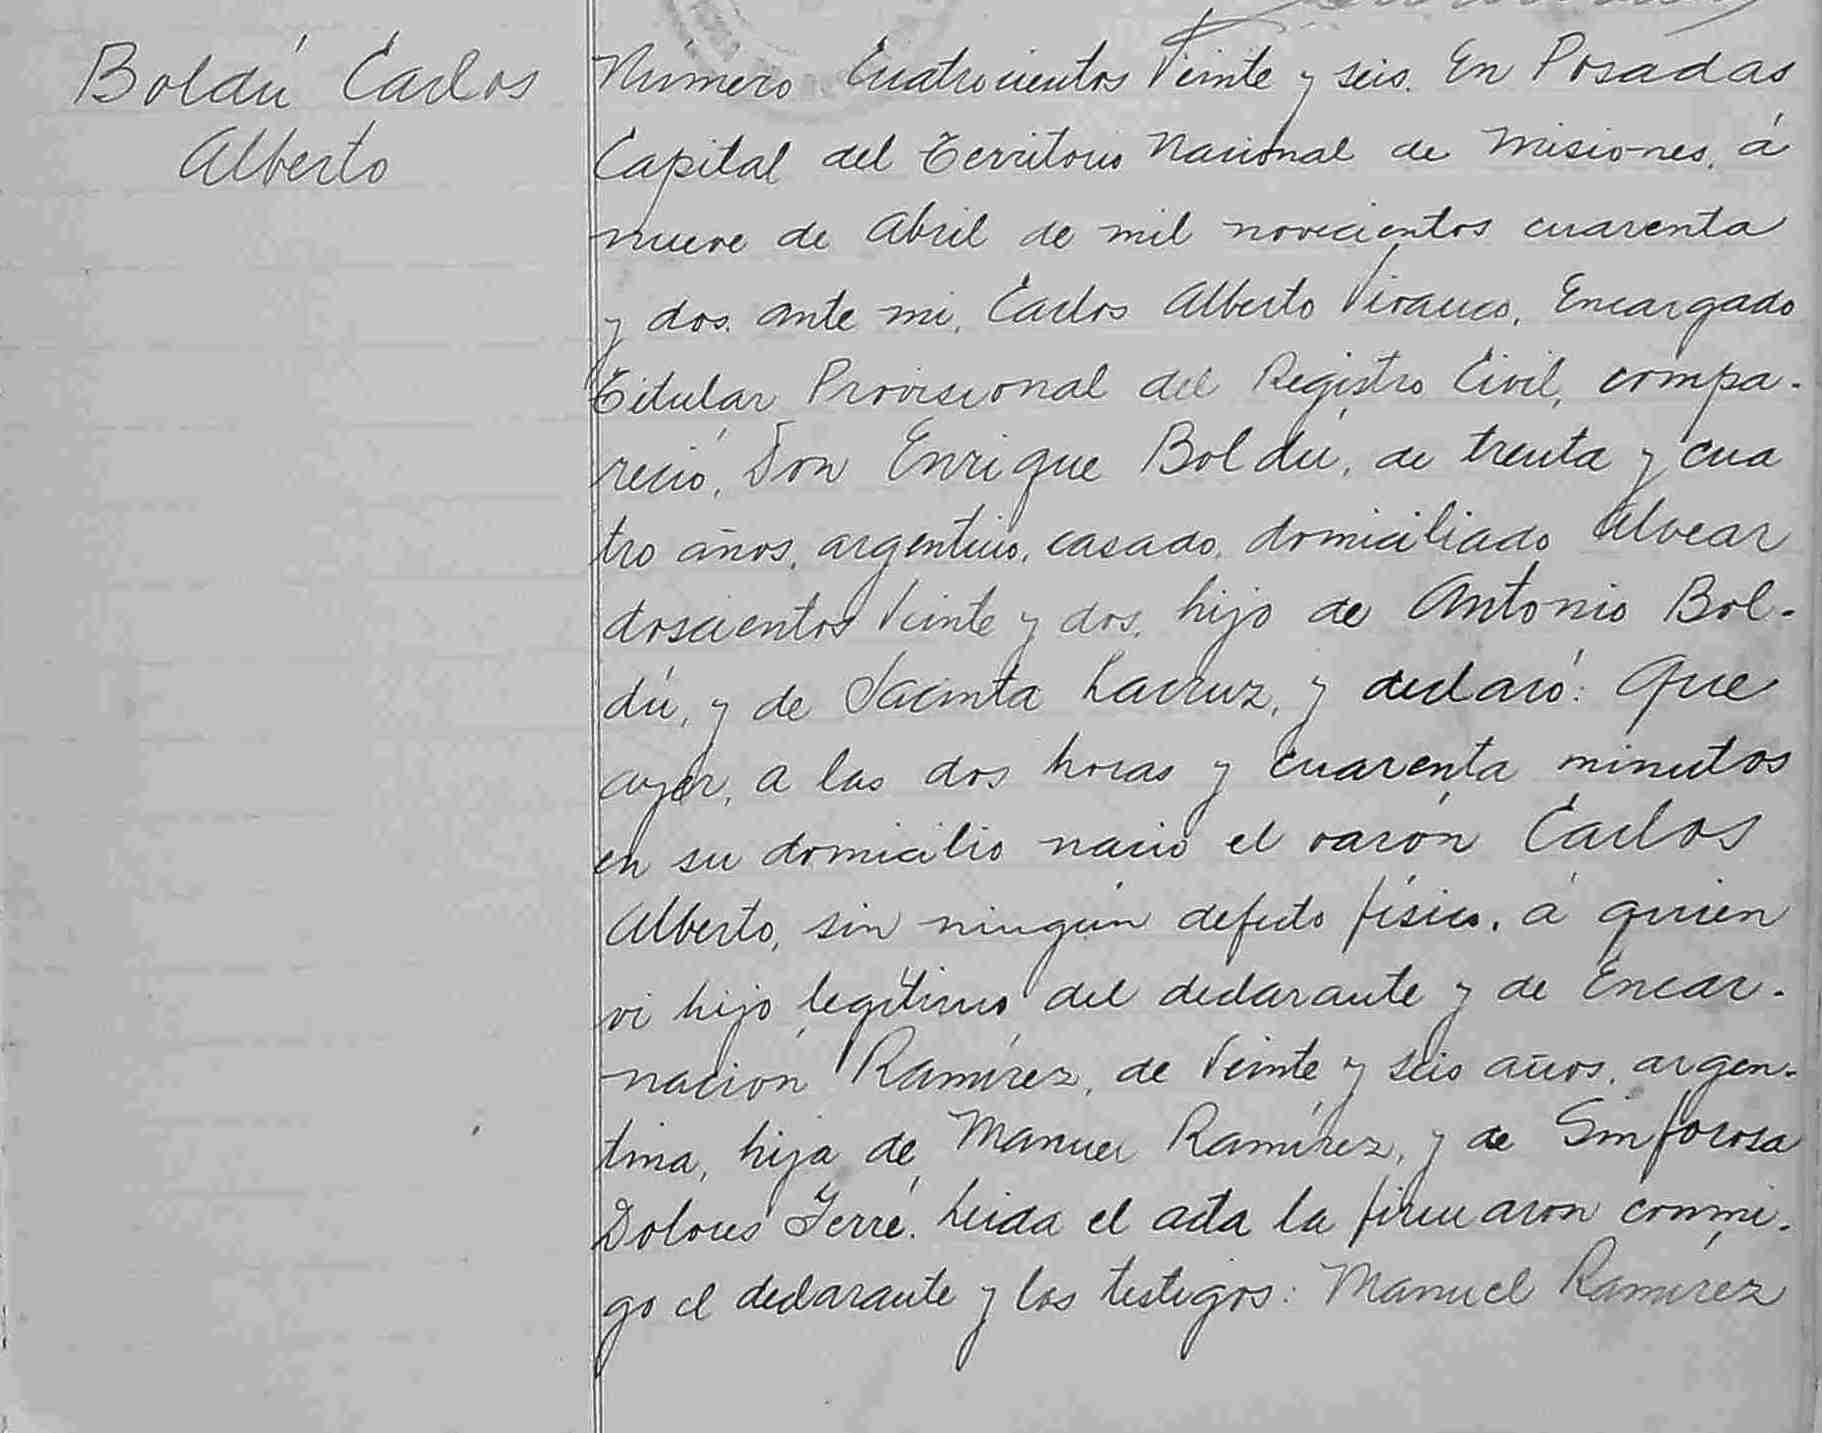 Boldú Carlos
Alberto
Número Cuatrocientos Veinte y seis. En Posadas
Capital del Territorio Nacional de Misiones, á
nueve de Abril de mil novecientos cuarenta
y dos. ante mi, Carlos Alberto Encargado
Titular Provisional del Registro Civil, compa-
reció, Don Enrique Boldú, de treinta y cua
tro años, argentino, casado, domiciliado Alvear
doscientos Veinte y dos, hijo de Antonio Bol-
dú, y de Jacinta Lacruz, y declaró: Que
ayer, a las dos horas y cuarenta minutos
en su domicilio nació el varón Carlos
Alberto, sin ningún defecto físico, á quien
vi hijo legítimo del declarante y de Encar-
nación Ramírez, de Veinte y seis años, argen-
tina, hija de Manuel Ramírez, y de Sinforosa
Dolores Ferré. Leida el acta la firmaron conmi-
go el declarante y los testigos: Manuel Ramírez